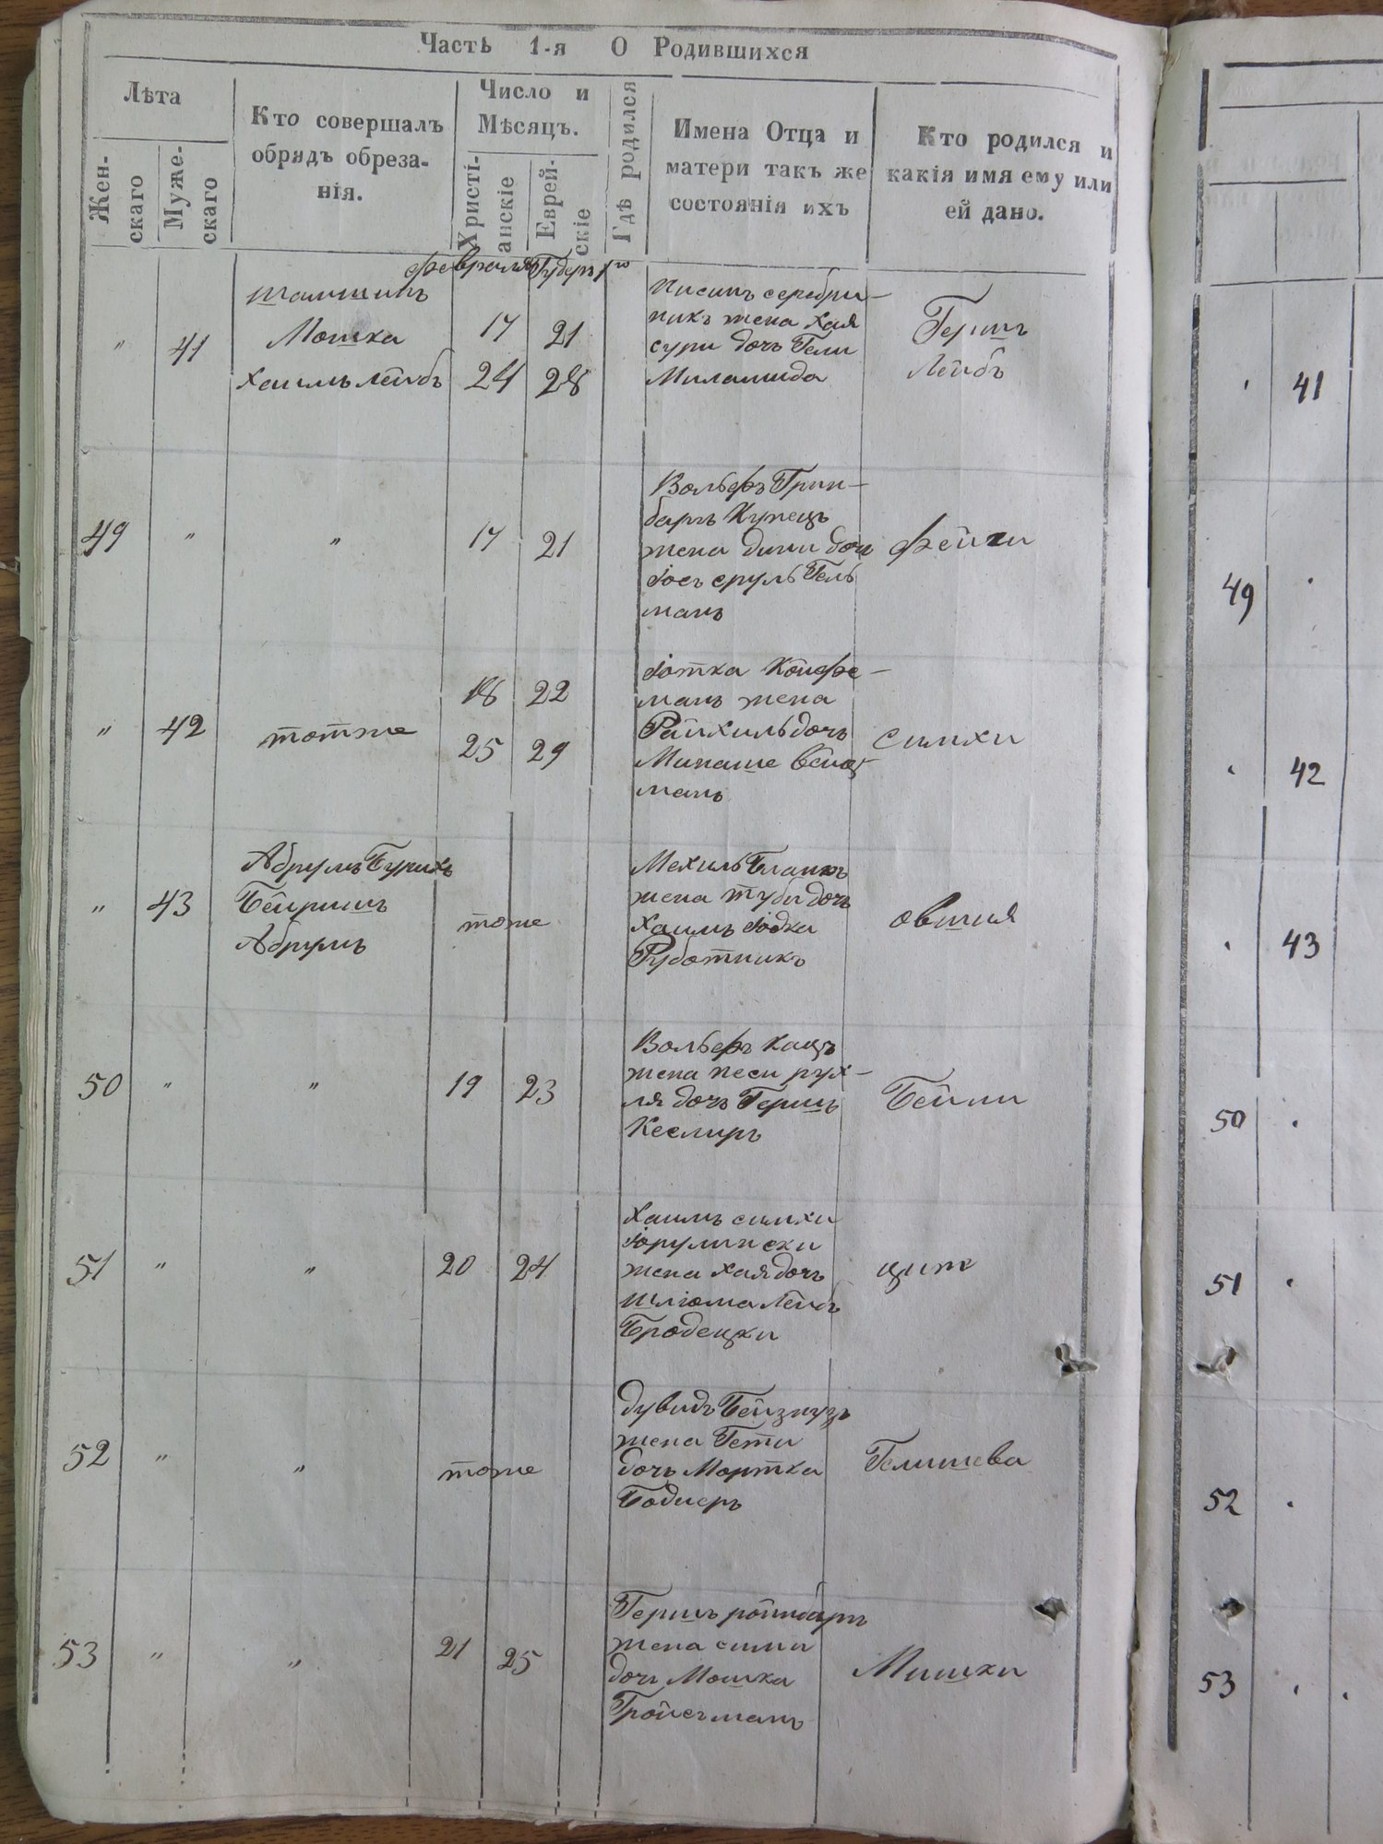 Часть 1-я О Родившихся
Лѣта
Жен-
скаго
Муже-
скаго
Кто совершалъ
обрядъ обреза-
нія.
Число и
Мѣсяцъ.
Христі-
анскіе
Еврей-
скіе
Гдѣ родился
Имена Отца и
матери такъ же
состоянія ихъ
Кто родился и
какія имя ему или
ей дано.
февраля
" 41
Мошка
Хаимъ Лейбъ
17 21
24 28
жена Хая
сури дочь Гели
Гершъ
Лейбъ
49 " "
17 21
Вольфъ Грин-
барг Купецъ
жена дини дочь
Іосъ сруль Гель
манъ
фейги
" 42
тотже
18 22
25 29
Іотка Койфе-
манъ жена
Рейхиль дочь
Минаше Вейц
манъ
симхи
" 43
Абрумъ Бурихъ
Бейришъ
Абрумъ
тоже
Мехиль Бланкъ
жена туби дочь
Хаимъ Іодка
Руботникъ
овшия
50 " "
19 23
Вольфъ Кацъ
жена песи рух-
ля дочь Гершъ
Кеслиръ
Бейли
51 " "
20 24
Хаимъ симхи
жена Хая дочь
шліома Лейбъ
Бродецки
52 " "
тоже
дувидъ
жена Гети
дочь Мортка
Бодиеръ
Гелишева
53 " "
21 25
Гершъ ройнбарг
жена сими
дочь Мошка
Гройсманъ
Мишки
41
49
42
43
50
51
52
53